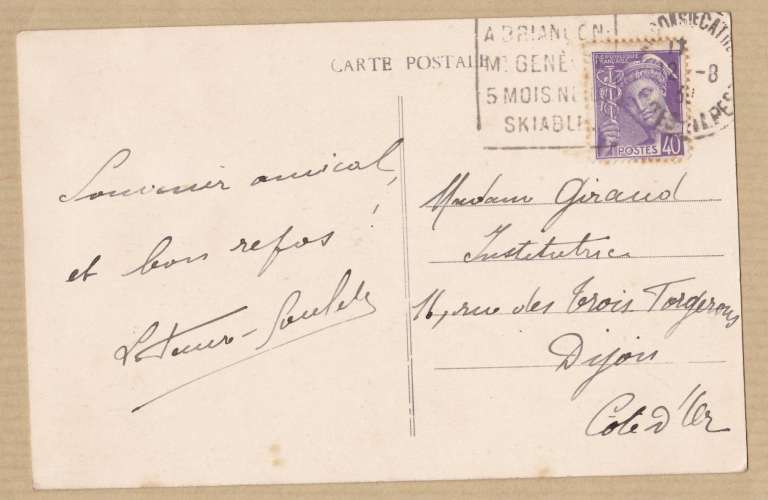 CARTE POSTALE
A BRIANÇON
Mt GENÈ
5 MOIS NE
SKIABL
REPUBLIQUE FRANÇAISE
POSTES 40
-8
Souvenir amical,
et bon repos !
Madame Giraud
Institutrice
16, rue des Trois Forgerons
Dijon
Côte d'Or